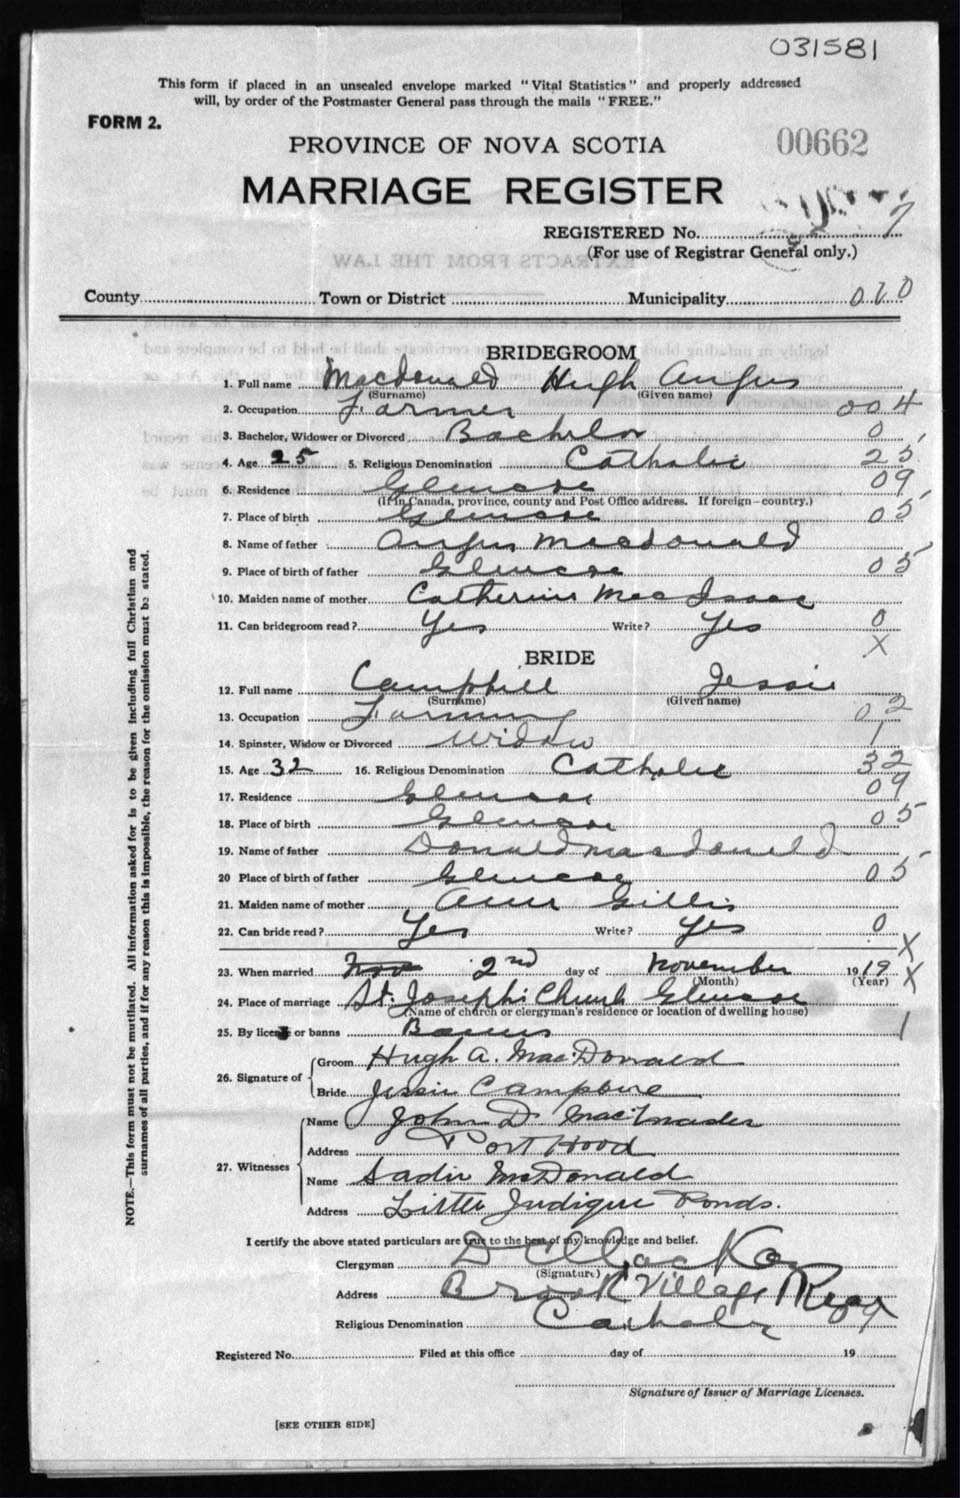 031581
This form if placed in an unsealed envelope marked "Vital Statistics" and properly addressed
will, by order of the Postmaster General pass through the mails "FREE."
FORM 2.
PROVINCE OF NOVA SCOTIA
00662
MARRIAGE REGISTER
REGISTERED No. 7
(For use of Registrar General only.)
EXTRACTS FROM THE LAW
County Town or District Municipality 010
BRIDEGROOM
1. Full name Macdonald Hugh Angus
(Surname) (Given name)
2. Occupation Farmer 004
3. Bachelor, Widower or Divorced Bachelor 0
4. Age 25 5. Religious Denomination Catholic 25
6. Residence Glencoe 09
(If in Canada, province, county and Post Office address. If foreign—country.)
7. Place of birth Glencoe 05
8. Name of father Angus Macdonald
9. Place of birth of father Glencoe 05
10. Maiden name of mother Catherine MacIsaac
11. Can bridegroom read? Yes Write? Yes 0
X
BRIDE
12. Full name Campbell Jessie
(Surname) (Given name)
13. Occupation Farming 02
14. Spinster, Widow or Divorced Widow 1
15. Age 32 16. Religious Denomination Catholic 32
17. Residence Glencoe 09
18. Place of birth Glencoe 05
19. Name of father Donald macdonald
20 Place of birth of father Glencoe 05
21. Maiden name of mother Ann Gillis
22. Can bride read? Yes Write? Yes 0
X
23. When married Nov 2nd day of November 1919 X
(Month) (Year)
24. Place of marriage St. Joseph's Church Glencoe
(Name of church or clergyman's residence or location of dwelling house)
25. By license or banns Banns 1
26. Signature of Groom Hugh A. MacDonald
Bride Jessie
27. Witnesses Name John D.
Address Port Hood
Name Sadie McDonald
Address Little Judique Ponds.
I certify the above stated particulars are true to the best of my knowledge and belief.
Clergyman D
(Signature)
Address Brook Village
Religious Denomination Catholic
Registered No. Filed at this office day of 19
Signature of Issuer of Marriage Licenses.
[SEE OTHER SIDE]
NOTE.—This form must not be mutilated. All information asked for is to be given including full Christian and
surnames of all parties, and if for any reason this is impossible, the reason for the omission must be stated.